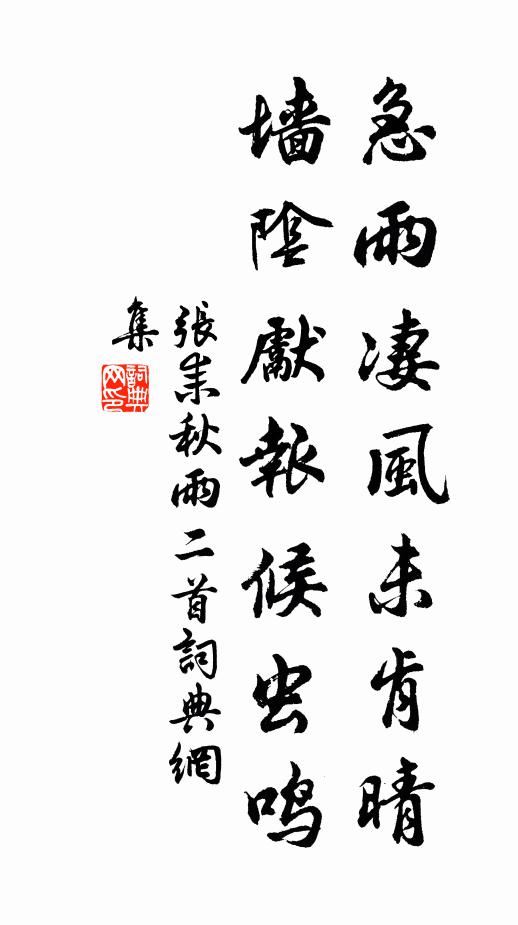 急雨凄風未肯晴
墙陰獻報候虫鳴
張耒秋雨二首詞典網
集
詞典
网印